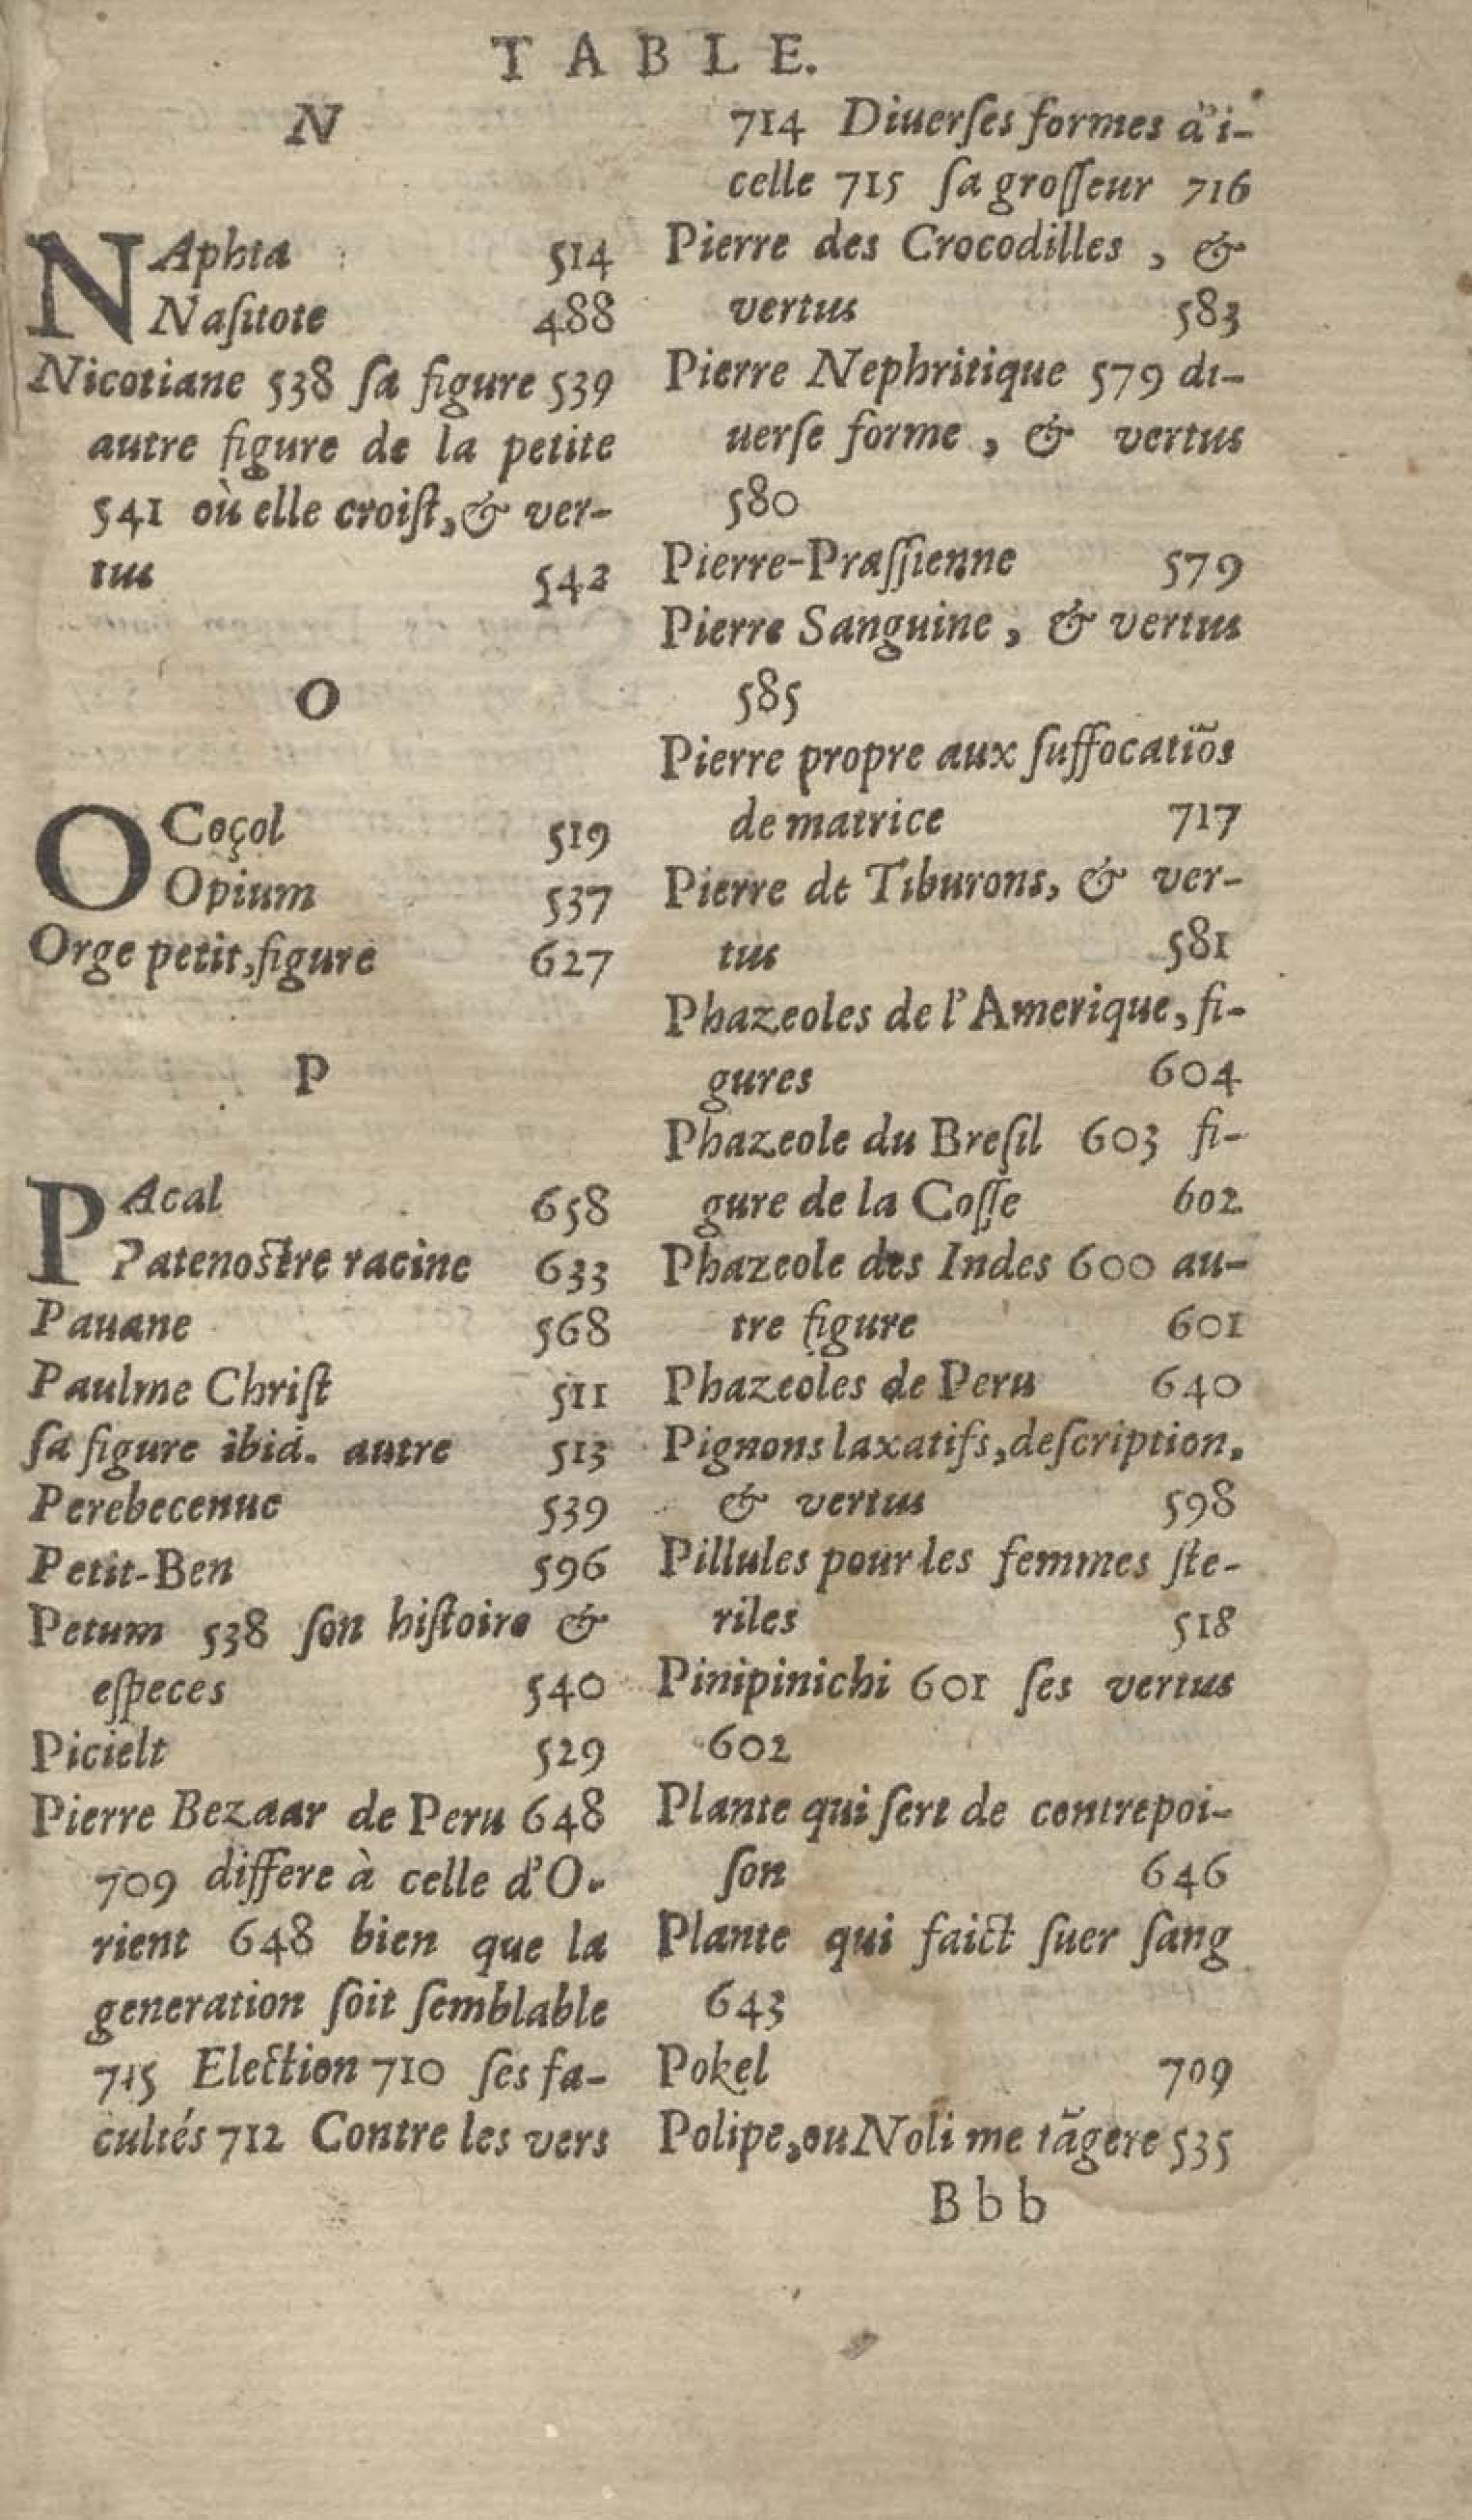 TABLE.
N
NAphta 514
Naſitote 488
Nicotiane 538 ſa figure 539
autre figure de la petite
541 où elle croiſt, & ver-
tus 542
O
OCoçol 519
Opium 537
Orge petit, figure 627
P
PAcal 658
Patenoſtre racine 633
Pauane 568
Paulme Chriſt 511
ſa figure ibid. autre 513
Perebecenuc 539
Petit-Ben 596
Petum 538 ſon hiſtoire &
eſpeces 540
Picielt 529
Pierre Bezaar de Peru 648
709 differe à celle d'O-
rient 648 bien que la
generation ſoit ſemblable
715 Election 710 ſes fa-
cultés 712 Contre les vers
714 Diuerſes formes d'i-
celle 715 ſa groſſeur 716
Pierre des Crocodilles, &
vertus 583
Pierre Nephritique 579 di-
uerſe forme, & vertus
580
Pierre-Praſſienne 579
Pierre Sanguine, & vertus
585
Pierre propre aux ſuffocatiõs
de matrice 717
Pierre de Tiburons, & ver-
tus 581
Phazeoles de l'Amerique, fi-
gures 604
Phazeole du Breſil 603 fi-
gure de la Coſſe 602
Phazeole des Indes 600 au-
tre figure 601
Phazeoles de Peru 640
Pignons laxatifs, deſcription,
& vertus 598
Pillules pour les femmes ſte-
riles 518
Pinipinichi 601 ſes vertus
602
Plante qui ſert de contrepoi-
ſon 646
Plante qui faict ſuer ſang
643
Pokel 709
Polipe, ou Noli me tãgere 535
Bbb